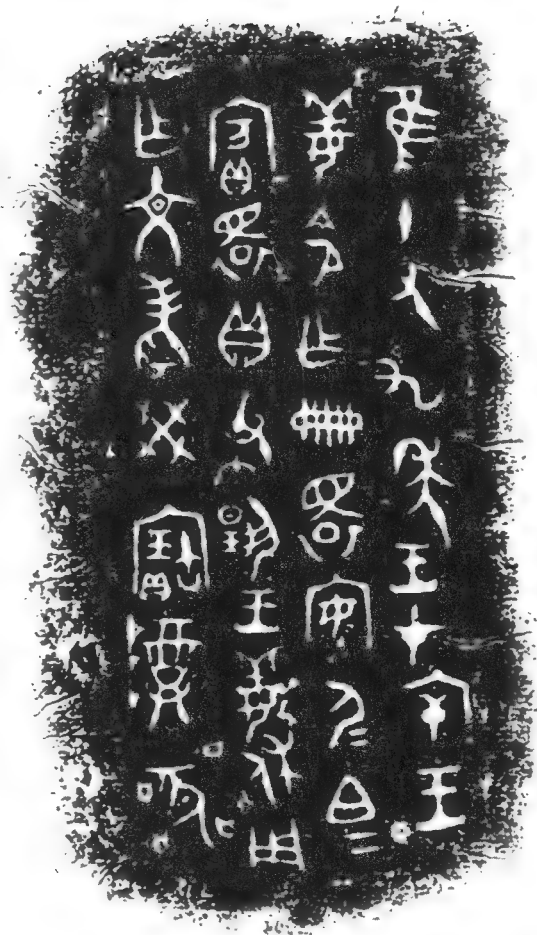 隹十又九年王才厈王
姜令乍冊睘安尸＝白＝
賓睘貝布揚王姜休用
乍文考癸寶尊器